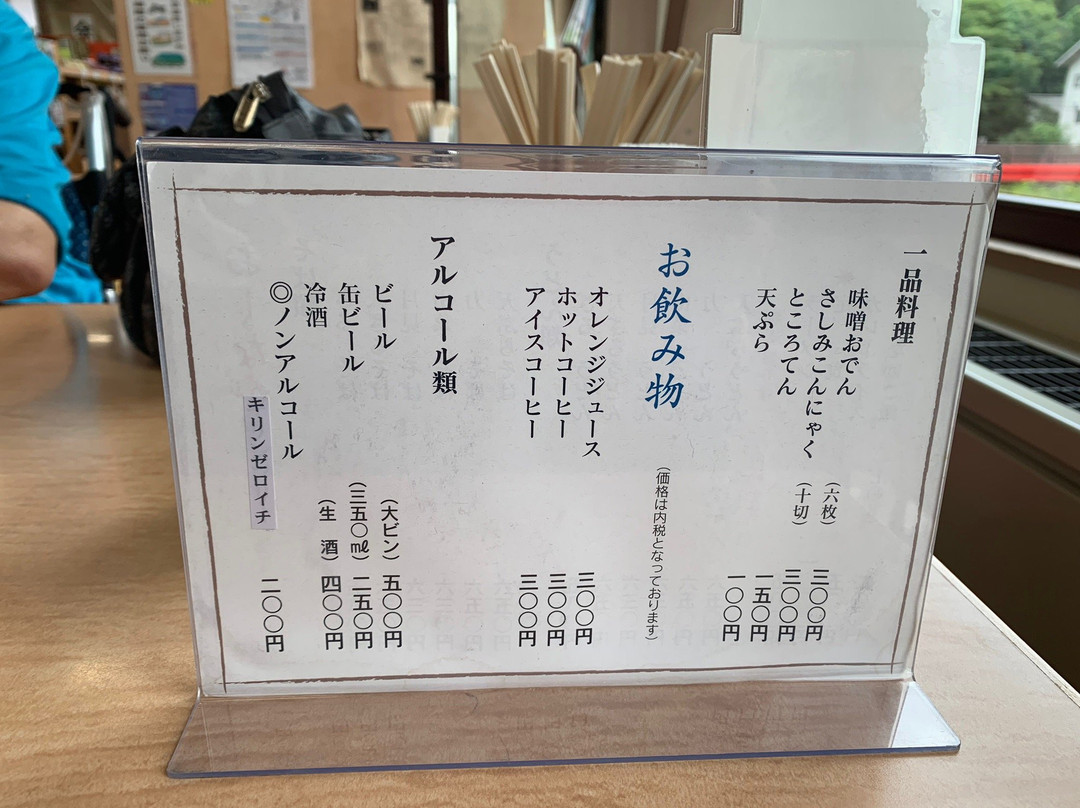 一品料理
味噌おでん (六枚) 三〇〇円
さしみこんにゃく (十切) 三〇〇円
ところてん 一五〇円
天ぷら 一〇〇円
お飲み物 (価格は内税となっております)
オレンジジュース 三〇〇円
ホットコーヒー 三〇〇円
アイスコーヒー 三〇〇円
アルコール類
ビール (大ビン) 五〇〇円
缶ビール (三五〇㎖) 二五〇円
冷酒 (生 酒) 四〇〇円
◎ノンアルコール 二〇〇円
キリンゼロイチ